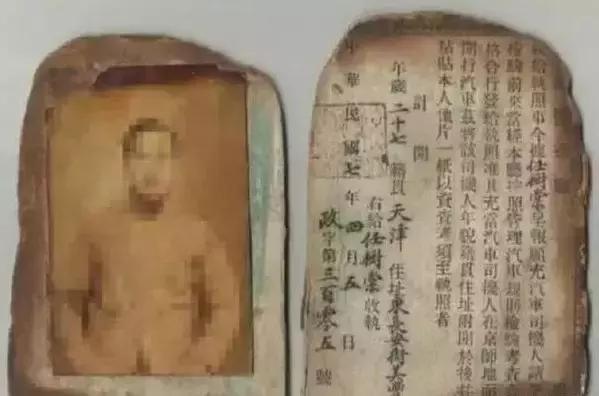 給執照事今據任樹棠呈報願充汽車司機人請
檢驗前來當經本廳按照管理汽車規則檢驗考查
格合行發給執照准其充當汽車司機人在京師地面
開行汽車茲將該司機人年貌籍貫住址附開於後
黏貼本人像片一紙以資查考須至執照者
計開
年歲二十七 籍貫天津 住址東長安街美
右給任樹棠收執
中華民國七年四月五日
政字第三百零五號